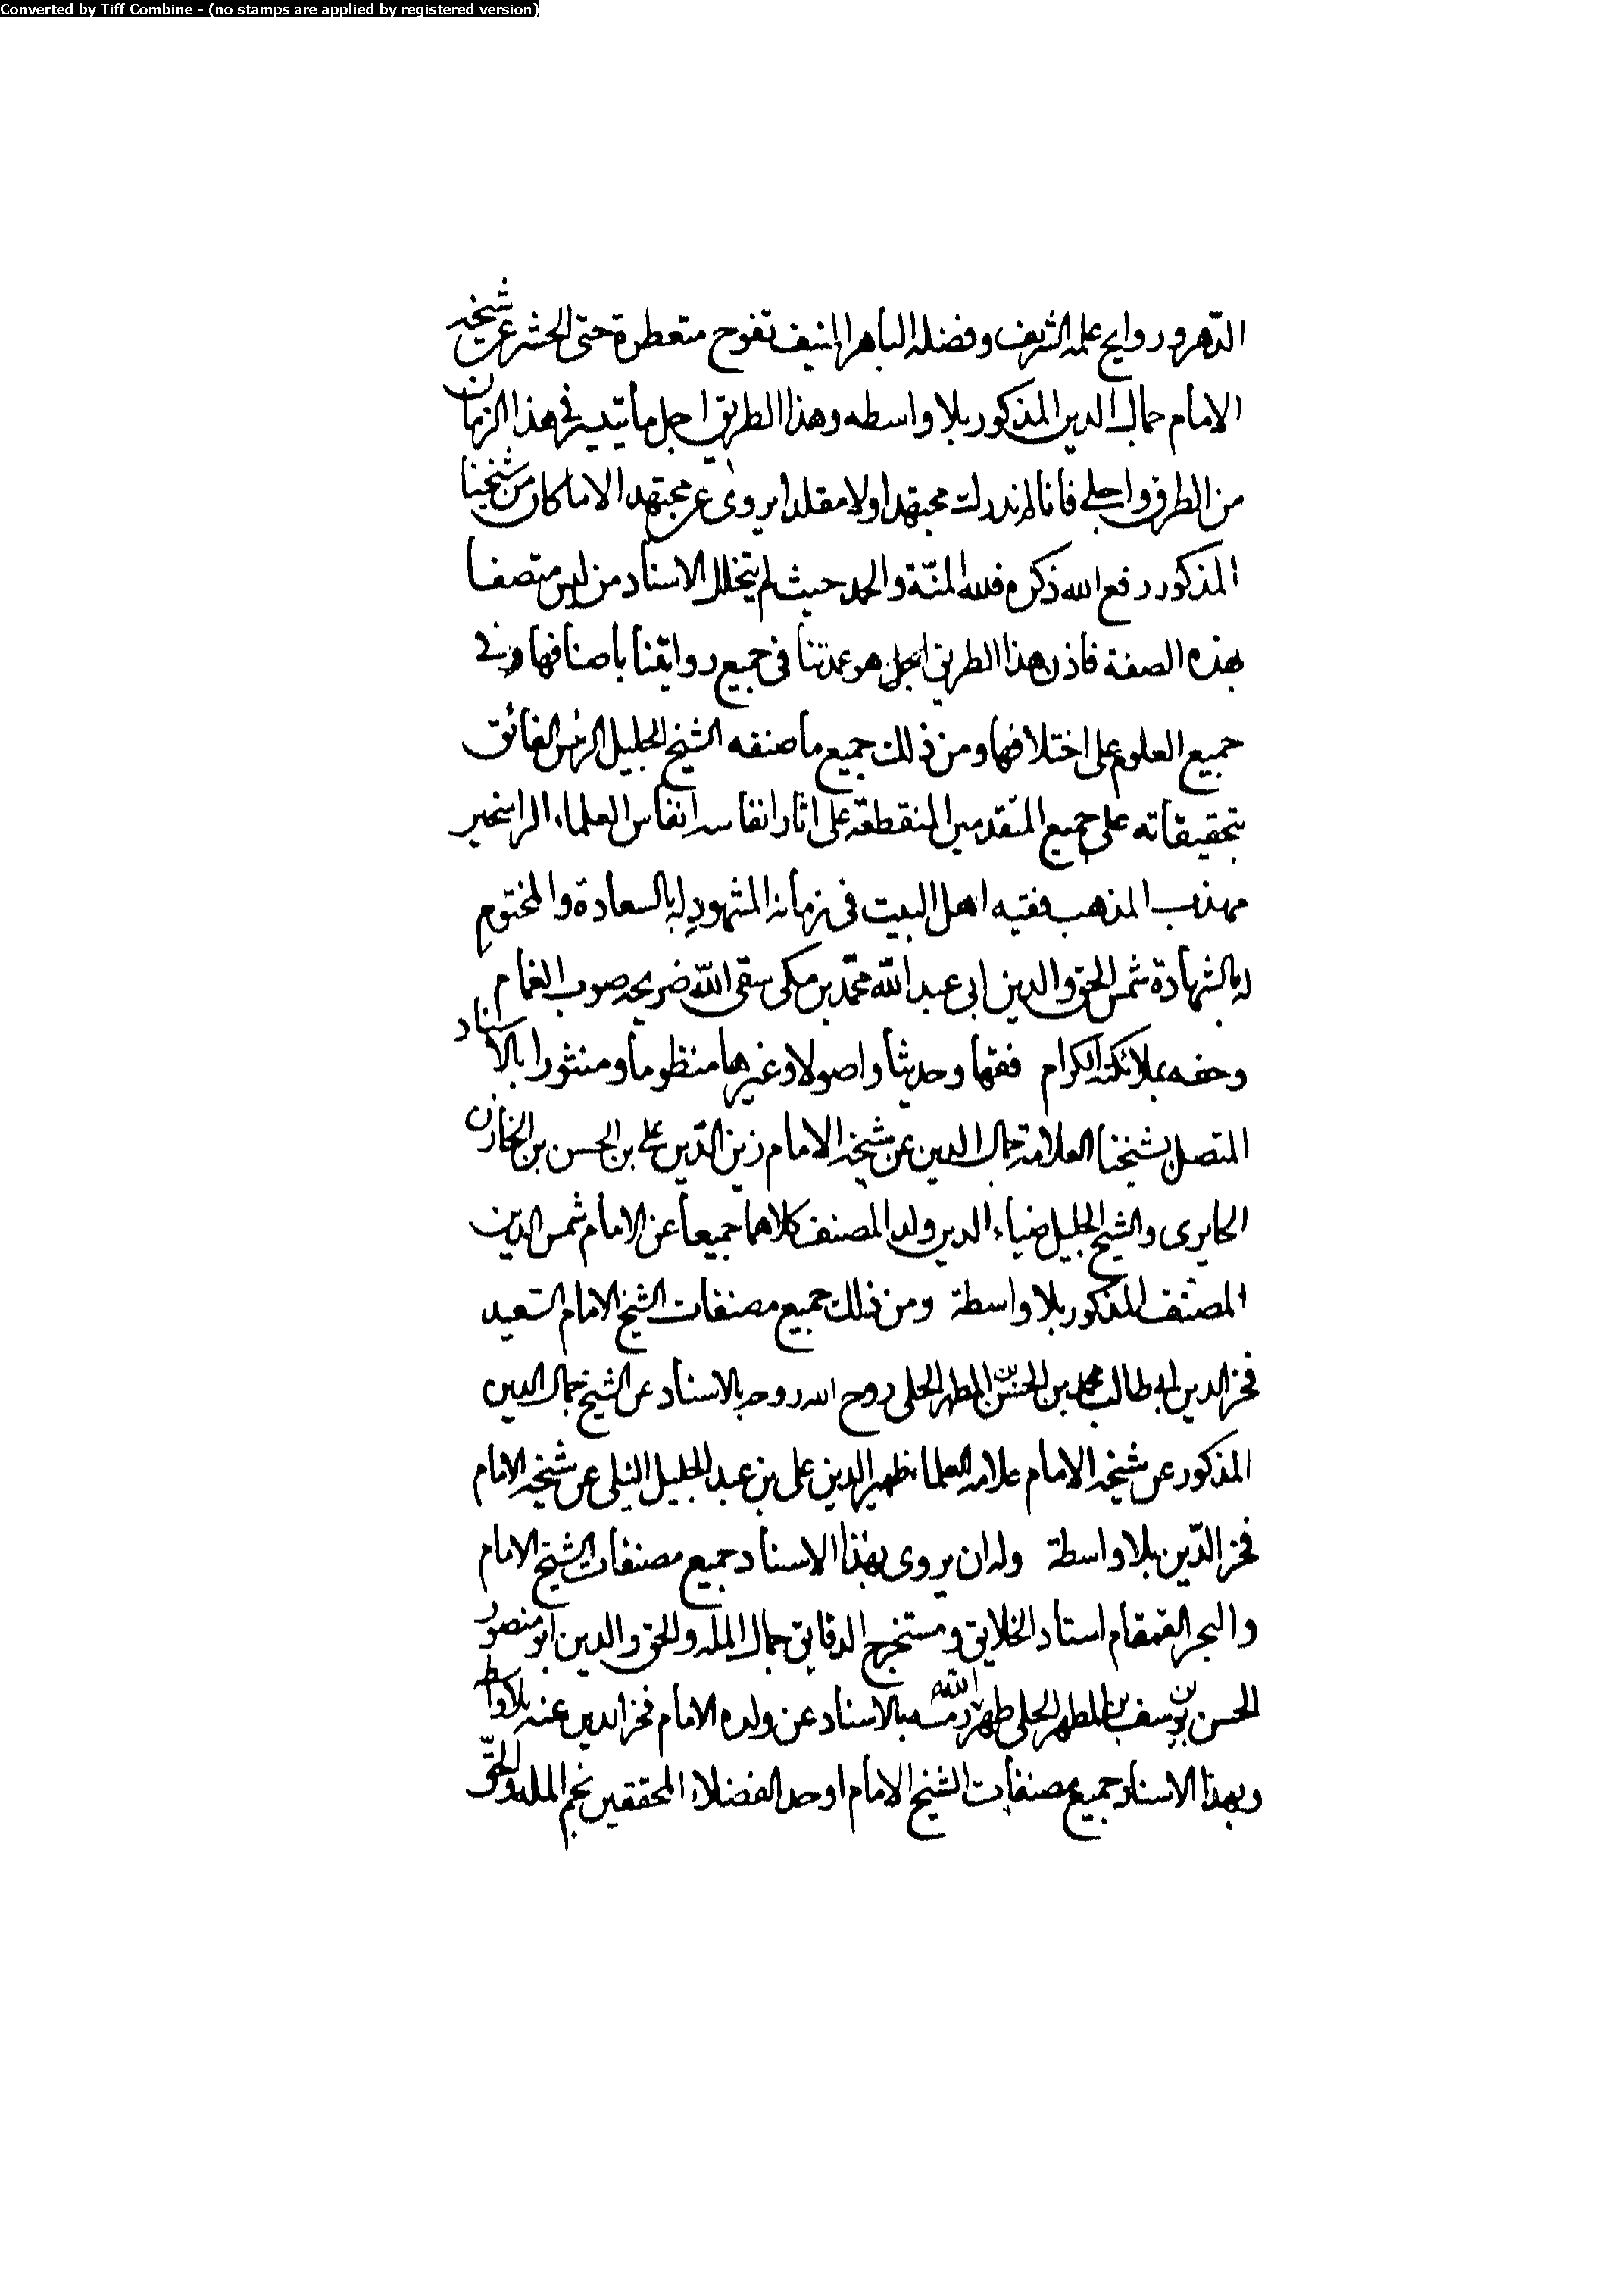 Converted by Tiff Combine - (no stamps are applied by registered version)
الدهر وروايح علمه الشريف وفضله الباهر المنيف تفوح متعطرة حتى الحشر عن شيخه
الامام جمال الدين المذكور بلا واسطه وهذا الطريق اجل ما تيسر في هذا الزمان
من الطرق واجلى فانا لم ندرك مجتهدا ولا مقلدا يروى عن مجتهد الا ما كان من شيخنا
المذكور رفع الله ذكره فلله المنّة والحمد حيث لم يتخلل الاسناد من ليس متصفا
بهذه الصفة فاذن هذا الطريق الجل هو عمدتنا فى جميع روايتنا باصنافها وفي
جميع العلوم على اختلافها ومن ذلك جميع ما صنفه الشيخ الجليل الرئس الفائق
بتحقيقاته على جميع المتقدمين المنقطعة على اثار انفاسه انفاس العلماء الراسخين
مهذب المذهب فقيه اهل البيت فى زمانه المشهود له بالسعادة والمختوم
له بالشهادة شمس الحق والدين ابى عبد الله محمّد بن مكى سقى الله ضريحه صوب الغمام
وحفه بملائكته الكرام فقها وحديثا واصولا وغيرها منظوما ومنثورا بالاسناد
المتصل بشيخنا العلامة جمال الدين عن شيخه الامام زين الدّين على بن الحسن بن الخازن
الحايرى والشيخ الجليل ضياء الدين ولد المصنف كلاهما جميعا عن الامام شمس الدين
المصنف المذكور بلا واسطة ومن ذلك جميع مصنفات الشيخ الامام السّعيد
فخر الدين ابى طالب محمد بن الحسن بن المطهر الحلى روح الله روحه بالاسناد عن الشيخ جمال الدين
المذكور عن شيخه الامام علامه العلماء ظهير الدين على بن عبد الجليل النيلى عن شيخه الامام
فخر الدّين بلا واسطة وله ان يروى بهذا الاسناد جميع مصنفات الشيخ الامام
والبحر القمقام استاد الخلايق ومستخرج الدقايق جمال المله والحق والدين ابو منصور
الحسن بن يوسف بن المطهر الحلى طهر الله رمسه بالاسناد عن ولده الامام فخر الدين عنه بلا واسطه
وبهذا الاسناد جميع مصنفات الشيخ الامام اوحد الفضلاء المحققين نجم المله والحقّ